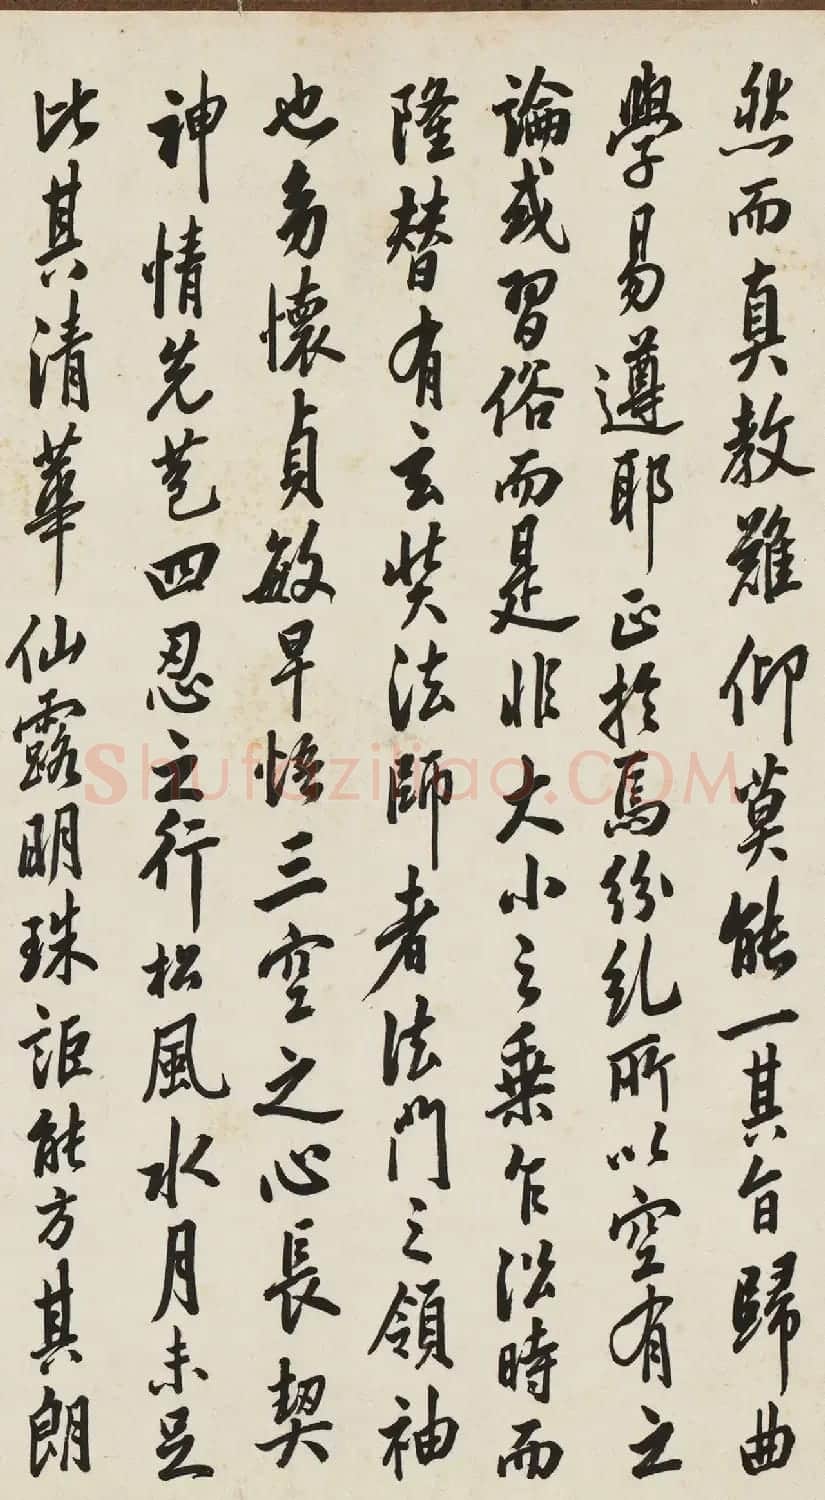 然而真教難仰莫能一其旨歸曲
學易遵耶正於焉紛糺所以空有之
論或習俗而是非大小之乘乍沿時而
隆替有玄奘法師者法門之領袖
也幼懷貞敏早悟三空之心長契
神情先苞四忍之行松風水月未足
比其清華仙露明珠詎能方其朗
Shufaziliao.COM